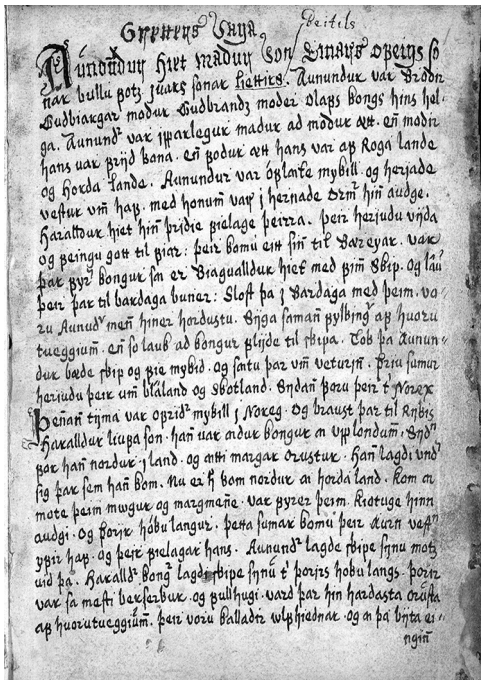 Gretters Saga
Aunundur hiet madur Son Ottars
nar bullu fotz jvars sonar hestirs. Aunundur var Brodir
Gudbiargar modur Gudbrandz modur Olafs kongs hins hel-
ga. Aunundr var jpparlegur madur ad modur ætt. en modir
hans var frijd kona. en fodur ætt hans var af Roga lande
og Horda lande. Aunundur var mykill. og herjade
vestur vm haf. med honum var j hernade hin audge.
Haralldur hiet hin þridie fielage þeirra. þeir herjudu vijda
og feingu gott til fiar: þeir komu eitt sin til Bareyar. var
þar fyr kongur sa er Kiagualldur hiet med fim skip. og
þeir þar til bardaga buner: Slost þa j Bardaga med þeim. vo-
ru Aunudr men hiner hordustu. Siga saman fylking af huoru
tueggium. en so lauk ad kongur flijde til skipa. Tok þa Aunun-
dur bæde skip og fie mykid. og satu þar vm veturin. þriu sumur
herjudu þeir um jrland og Skotland. Sydan foru þeir t Noregs
þenan tyma var ofridr mykill j Noreg. og braust þar til Rijkis
Haralldur liufa son. han var adur kongur a vpplondum. Sydn
for han nordur j land. og atti margar orustur. Han lagdi vndr
sig þar sem han kom. Nu er h kom nordur a horda land. kom a
mote þeim mugur og margmene. var fyrer þeim. Kiotuge hinn
audgi. og þorir hoku langur. þetta sumar komu þeir Aunn vestn
yfir haf. og þeir fielagar hans. Aunundr lagde skipe synu motz
uid þa. Haralldr kongr lagdi skipe synu t þoris hoku langs. þorir
var sa mesti berserkur. og fullhugi. vard þar hin hardasta orusta
af huorutueggium. þeir voru kalladir wlfhiednar. og a þa bijta ei-
ngin